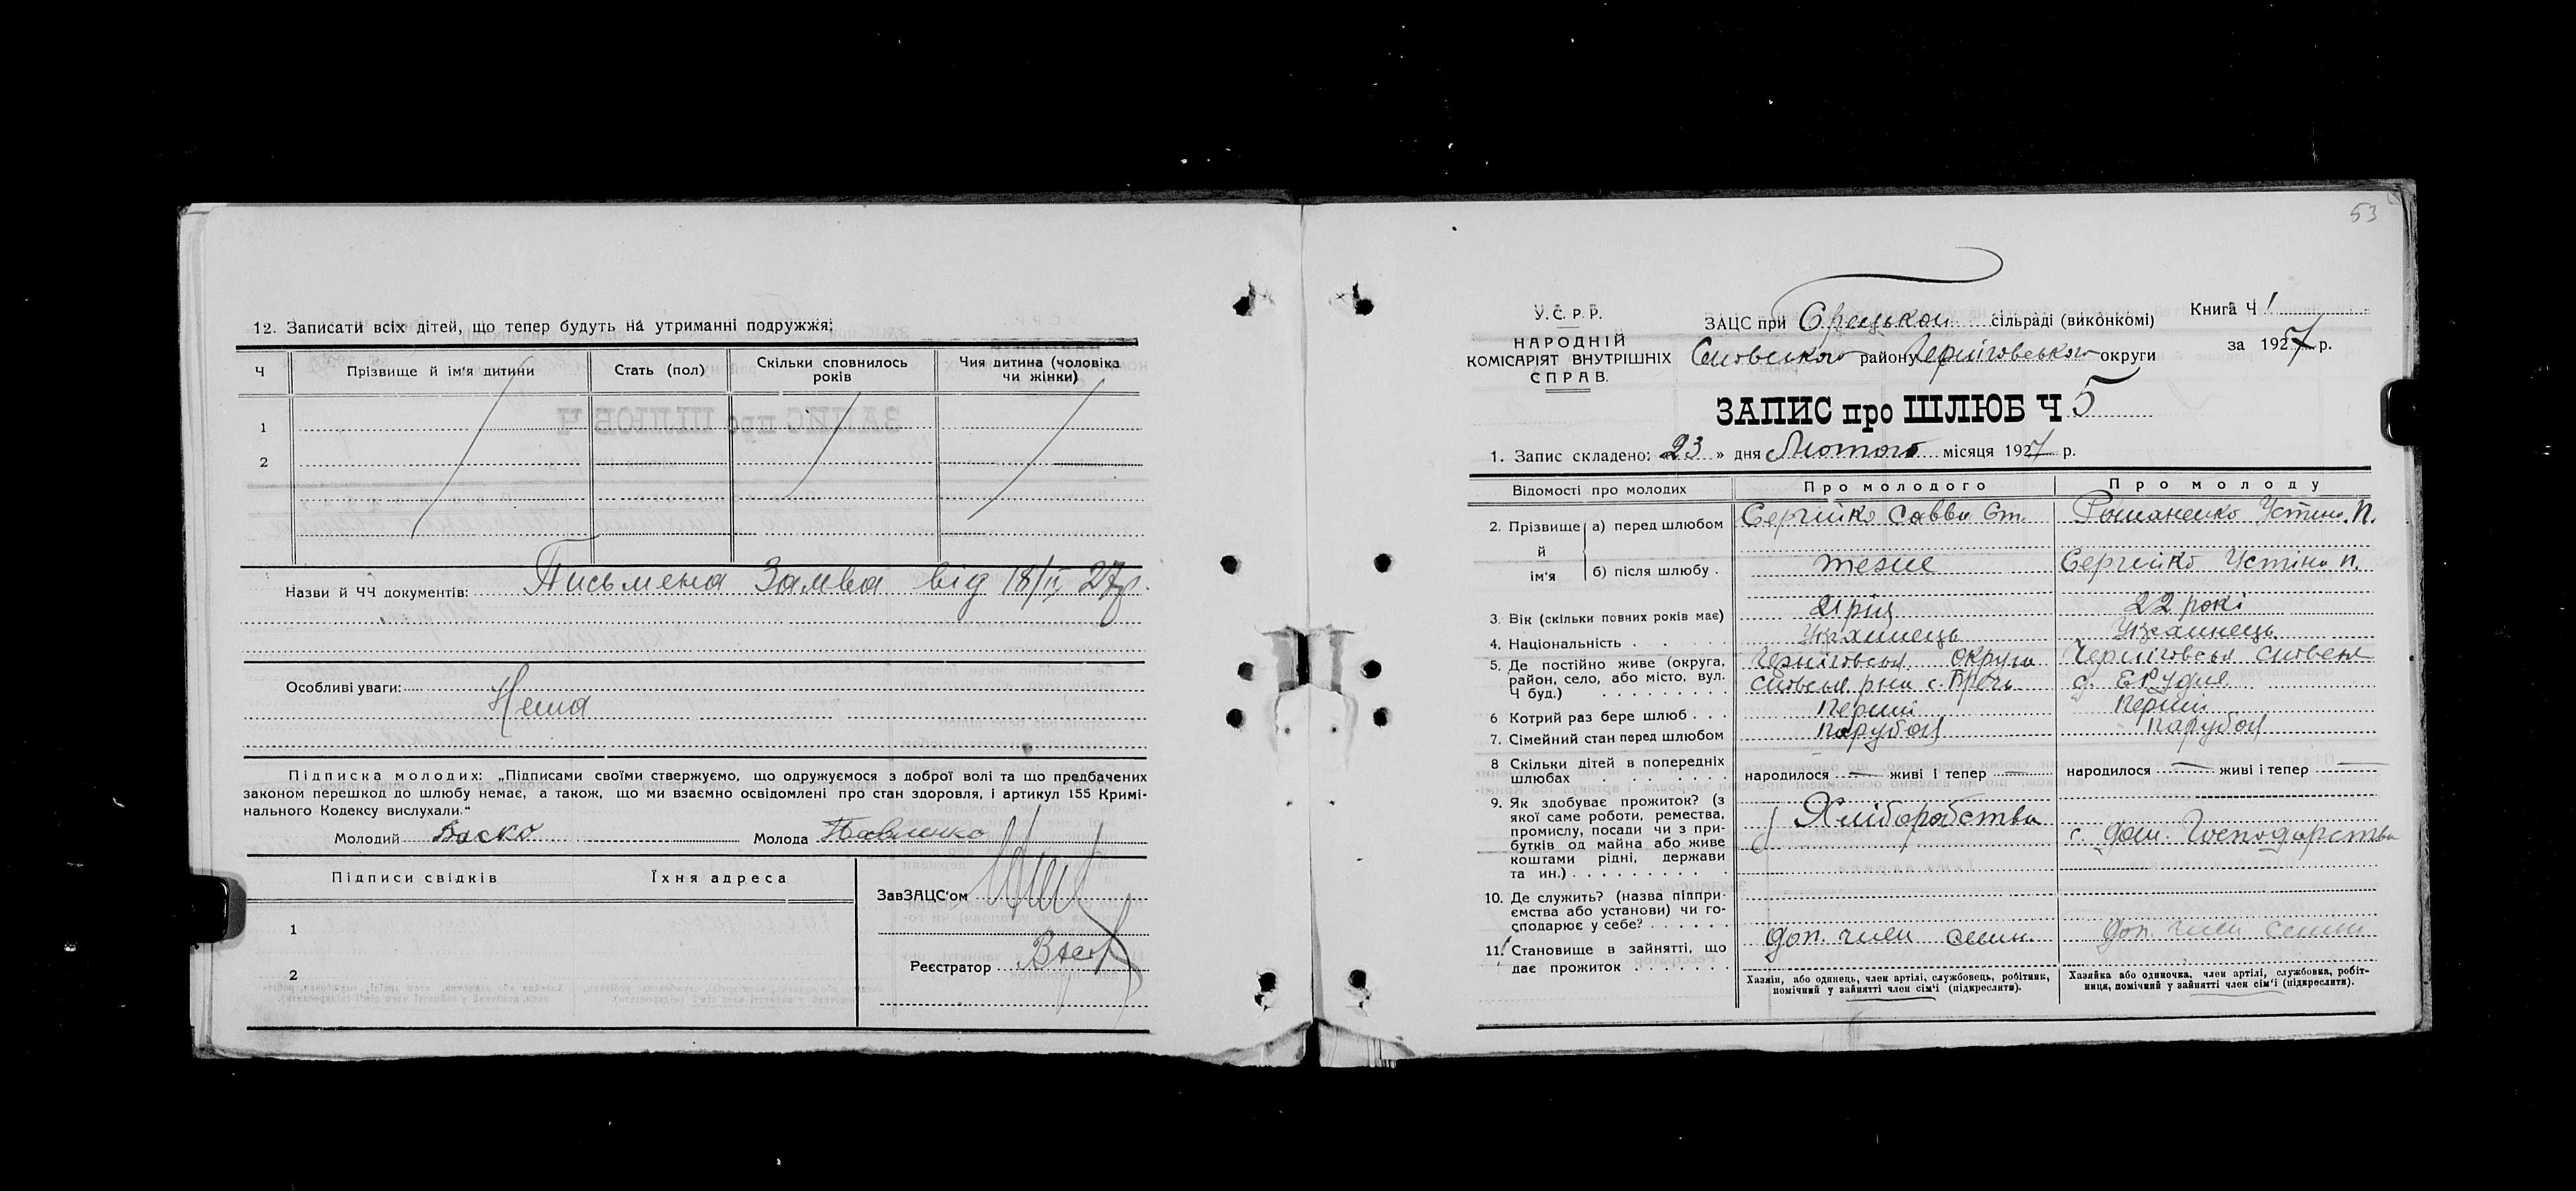 12. Записати всіх дітей, що тепер будуть на утриманні подружжя:
Ч
Прізвище й ім'я дитини
Стать (пол)
Скільки сповнилось років
Чия дитина (чоловіка чи жінки)
1
2
Назви й ЧЧ документів: Письмена Заява від 18/II 27р.
Особливі уваги: Нема
Підписка молодих: „Підписами своїми стверджуємо, що одружуємося з доброї волі та що предбачених
законом перешкод до шлюбу немає, а також, що ми взаємно освідомлені про стан здоровля, і артикул 155 Кримі-
нального Кодексу вислухали."
Молодий Васко Молода Павленко
Підписи свідків Їхня адреса
1
2
ЗавЗАЦС'ом
Реєстратор
53
У.С.Р.Р.
НАРОДНІЙ
КОМІСАРІЯТ ВНУТРІШНІХ
СПРАВ.
ЗАЦС при сільраді (виконкомі)
Сновського району Чернігівського округи
Книга Ч 1
за 1927 р.
ЗАПИС про ШЛЮБ Ч 5
1. Запис складено: „23" дня Лютого місяця 1927 р.
Відомості про молодих
Про молодого
Про молоду
2. Прізвище й ім'я
а) перед шлюбом
Сергійко Савва Ст.
Романенко Устина П.
б) після шлюбу
теж
Сергійко Устина П.
3. Вік (скільки повних років має)
21 рік
22 рокі
4. Національність
Українець
Українець
5. Де постійно живе (округа,
район, село, або місто, вул.
Ч буд.)
Чернігівська округа
Сновськ. рна с. Бречь
Чернігівська Сновськ
6 Котрий раз бере шлюб
Перший
Перший
7. Сімейний стан перед шлюбом
парубок
парубок
8 Скільки дітей в попередніх
шлюбах
народилося — живі і тепер —
народилося — живі і тепер —
9. Як здобуває прожиток? (з
якої саме роботи, ремества,
промислу, посади чи з при-
бутків од майна або живе
коштами рідні, держави
та ин.)
Хліборобства
с. дом. Господарства
10. Де служить? (назва підпри-
ємства або установи) чи го-
сподарює у себе?
11. Становище в зайнятті, що
дає прожиток
доп. член семи
доп. член семи
Хазяїн, або одинець, член артілі, службовець, робітник,
помічний у зайнятті член сім'ї (підкреслити).
Хазяйка або одиночка, член артілі, службовка, робіт-
ниця, помічний у зайнятті член сім'ї (підкреслити).